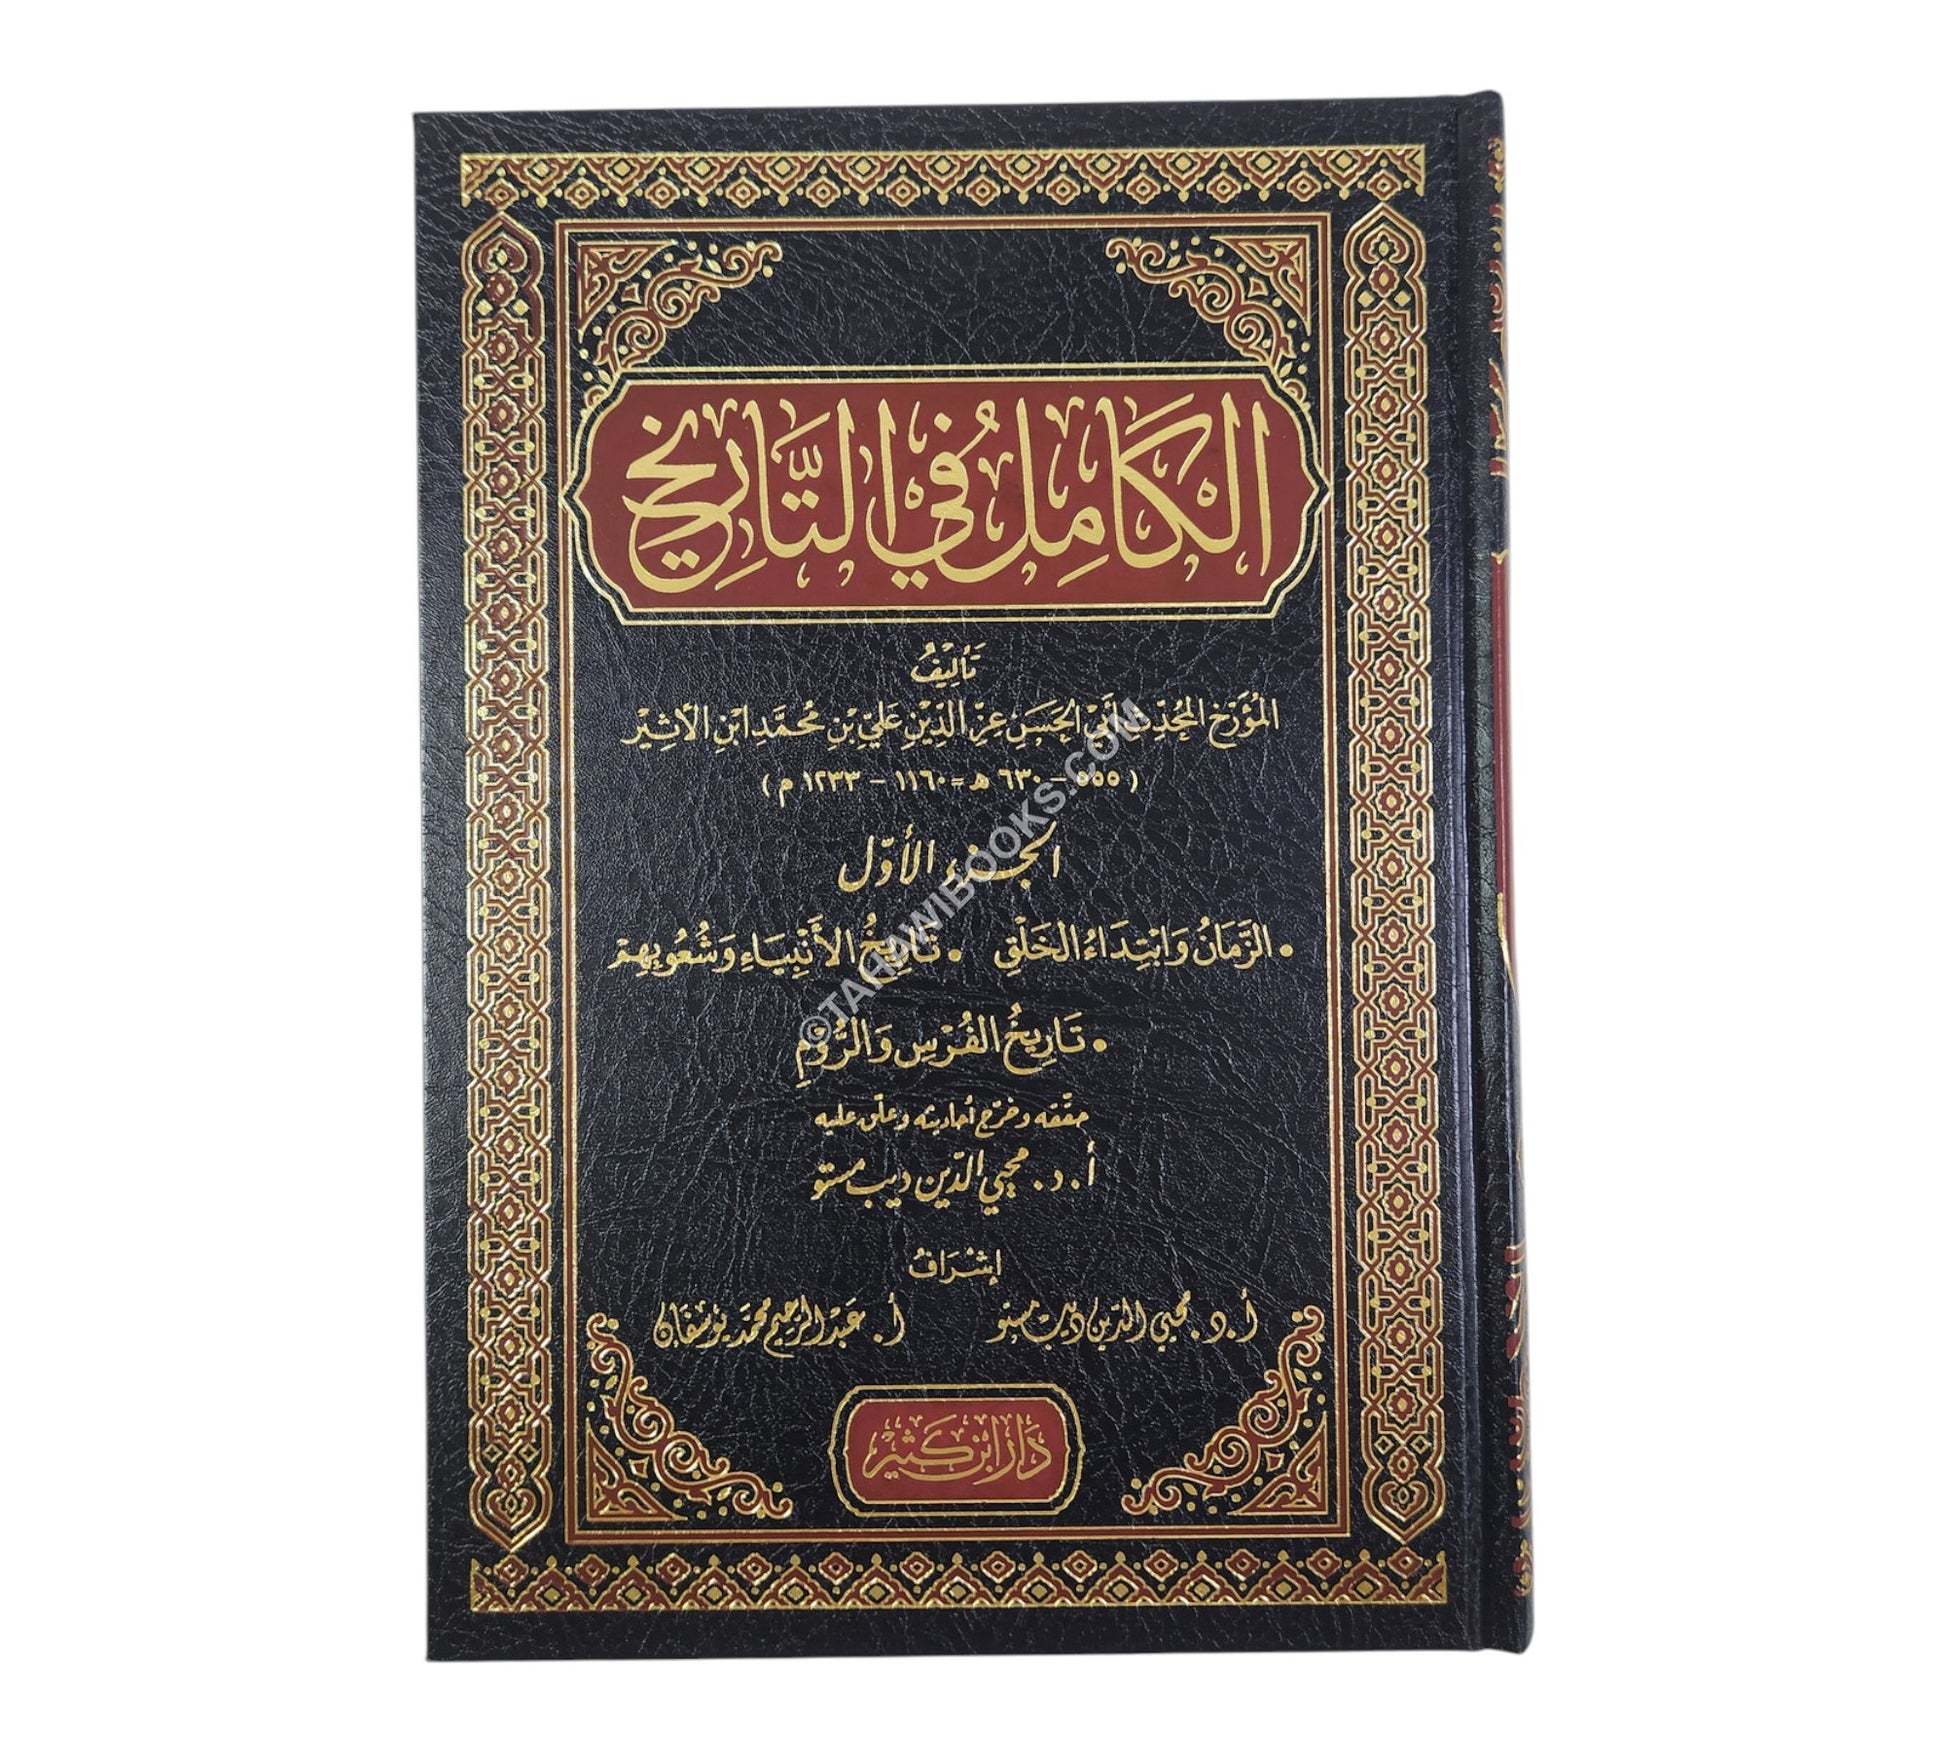 الكَامِلُ في التَّارِيخِ
تَأليفُ
المُؤَرِّخِ المُحَدِّثِ أَبي الحَسَنِ عِزِّ الدِّيْنِ عَليِّ بْنِ مُحَمَّدِ ابْنِ الأَثِيْرِ
(٥٥٥ - ٦٣٠ هـ = ١١٦٠ - ١٢٣٣ م)
الجزء الأوّل
• الزَّمَانُ وَابْتِدَاءُ الخَلْقِ • تَارِيخُ الأَنْبِيَاءِ وَشُعُوبِهِمْ
• تَارِيخُ الفُرْسِ وَالرُّوْمِ
حقّقه وخرّج أحاديثه وعلّق عليه
أ. د. محيي الدّين ديب مستو
إِشْرَافُ
أ. د. محيي الدين ديب مستو أ. عبد الرحيم محمد يوسفان
دَارُ ابْنِ كَثِيْرٍ
©TAHAWIBOOKS.COM